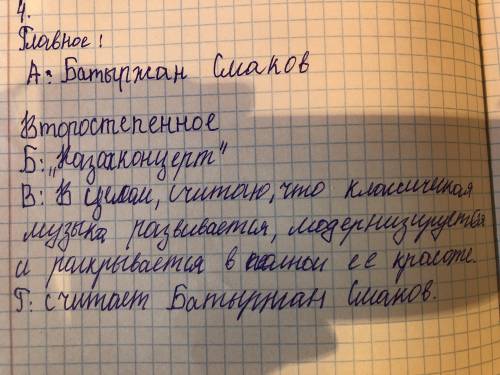 4.
Главное:
А: Батыржан Смаков
Второстепенное
Б: „Казахконцерт"
В: В целом, считаю, что классическая
музыка развивается, модернизируется
и раскрывается в полной ее красоте.
Г: считает Батыржан Смаков.